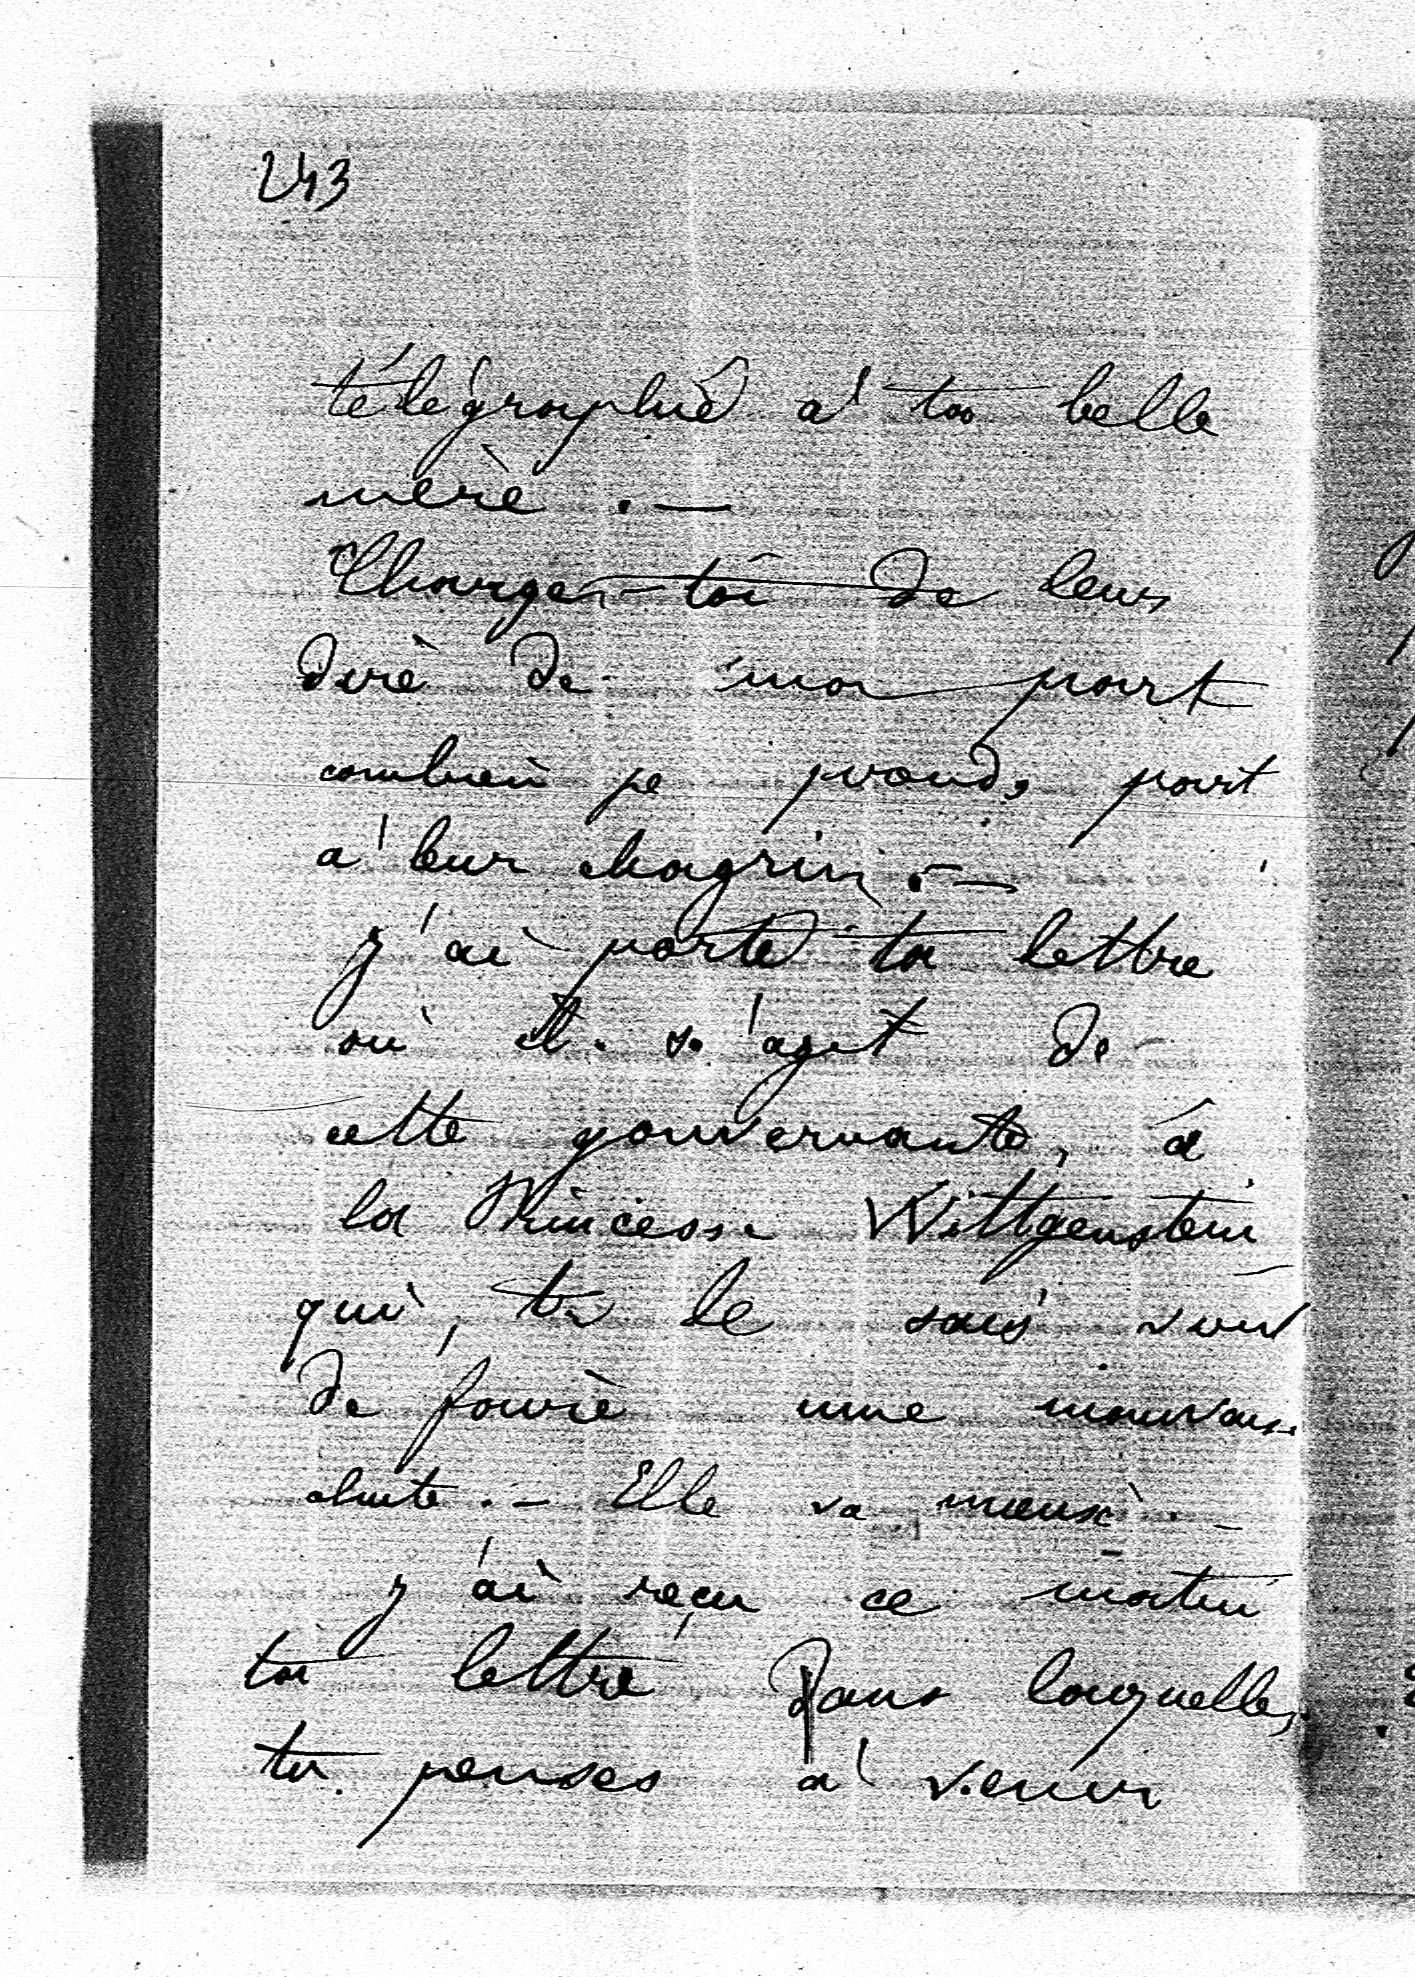 243
télégraphié à ta belle
mère . —
Charge-toi de leur
dire de ma part
combien je prends part
à leur chagrin . —
j'ai porté ta lettre
où il s'agit de
cette gouvernante, à
la Princesse Wittgenstein
qui, tu le sais vient
de faire une mauvaise
chute . — Elle va mieux . —
j'ai reçu ce matin
ta lettre dans laquelle
tu penses à venir